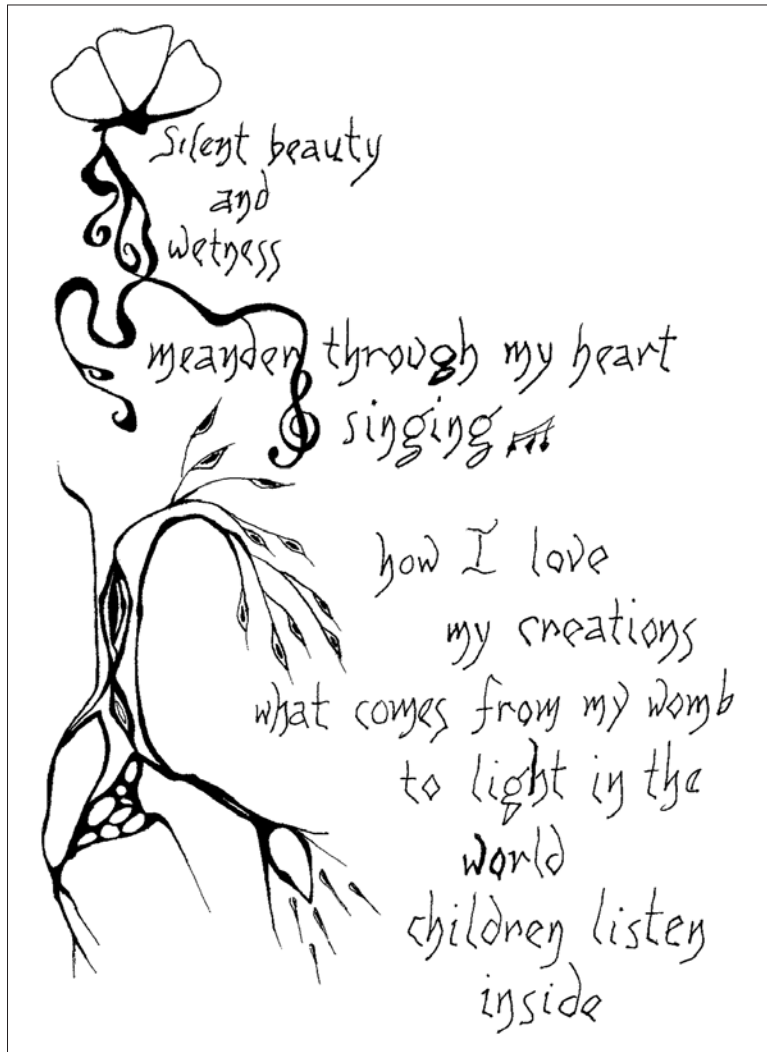 Silent beauty
and
wetness
meander through my heart
singing
how I love
my creations
what comes from my womb
to light in the
world
children listen
inside